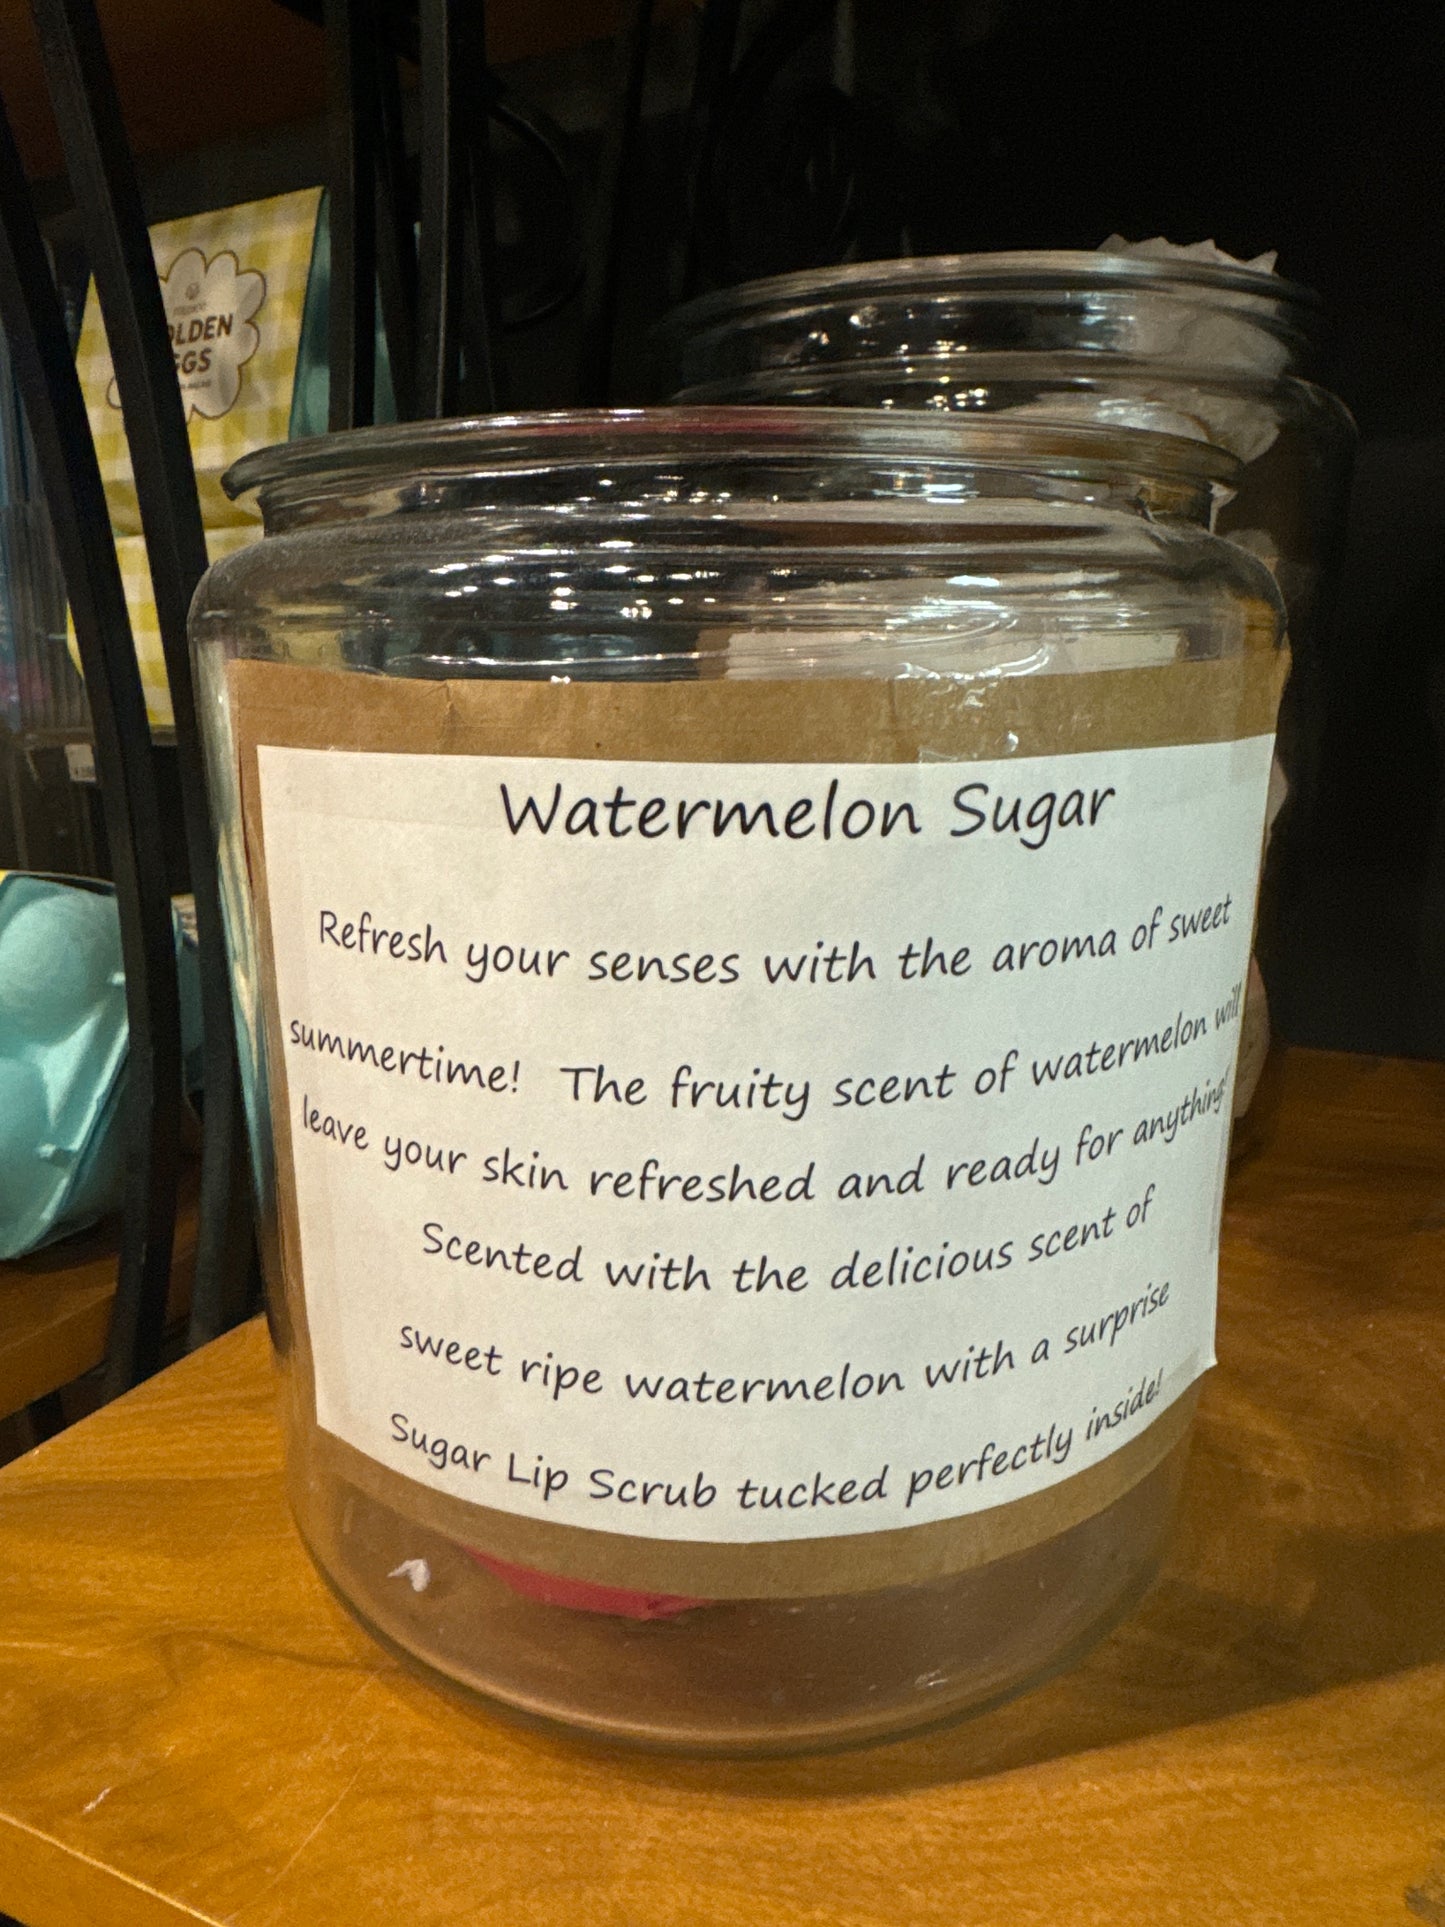 OLDEN
GGS
Watermelon Sugar
Refresh your senses with the aroma of sweet
summertime! The fruity scent of watermelon will
leave your skin refreshed and ready for anything!
Scented with the delicious scent of
sweet ripe watermelon with a surprise
Sugar Lip Scrub tucked perfectly inside!